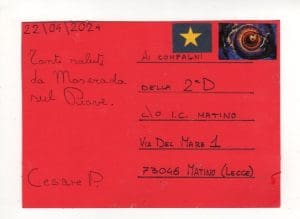 22/04/2021
Tanti saluti
da Maserada
sul Piave.
Cesare P.
Ai COMPAGNI
DELLA 2ªD
C/O I.C. MATINO
VIA DEL MARE 1
73046 MATINO (LECCE)